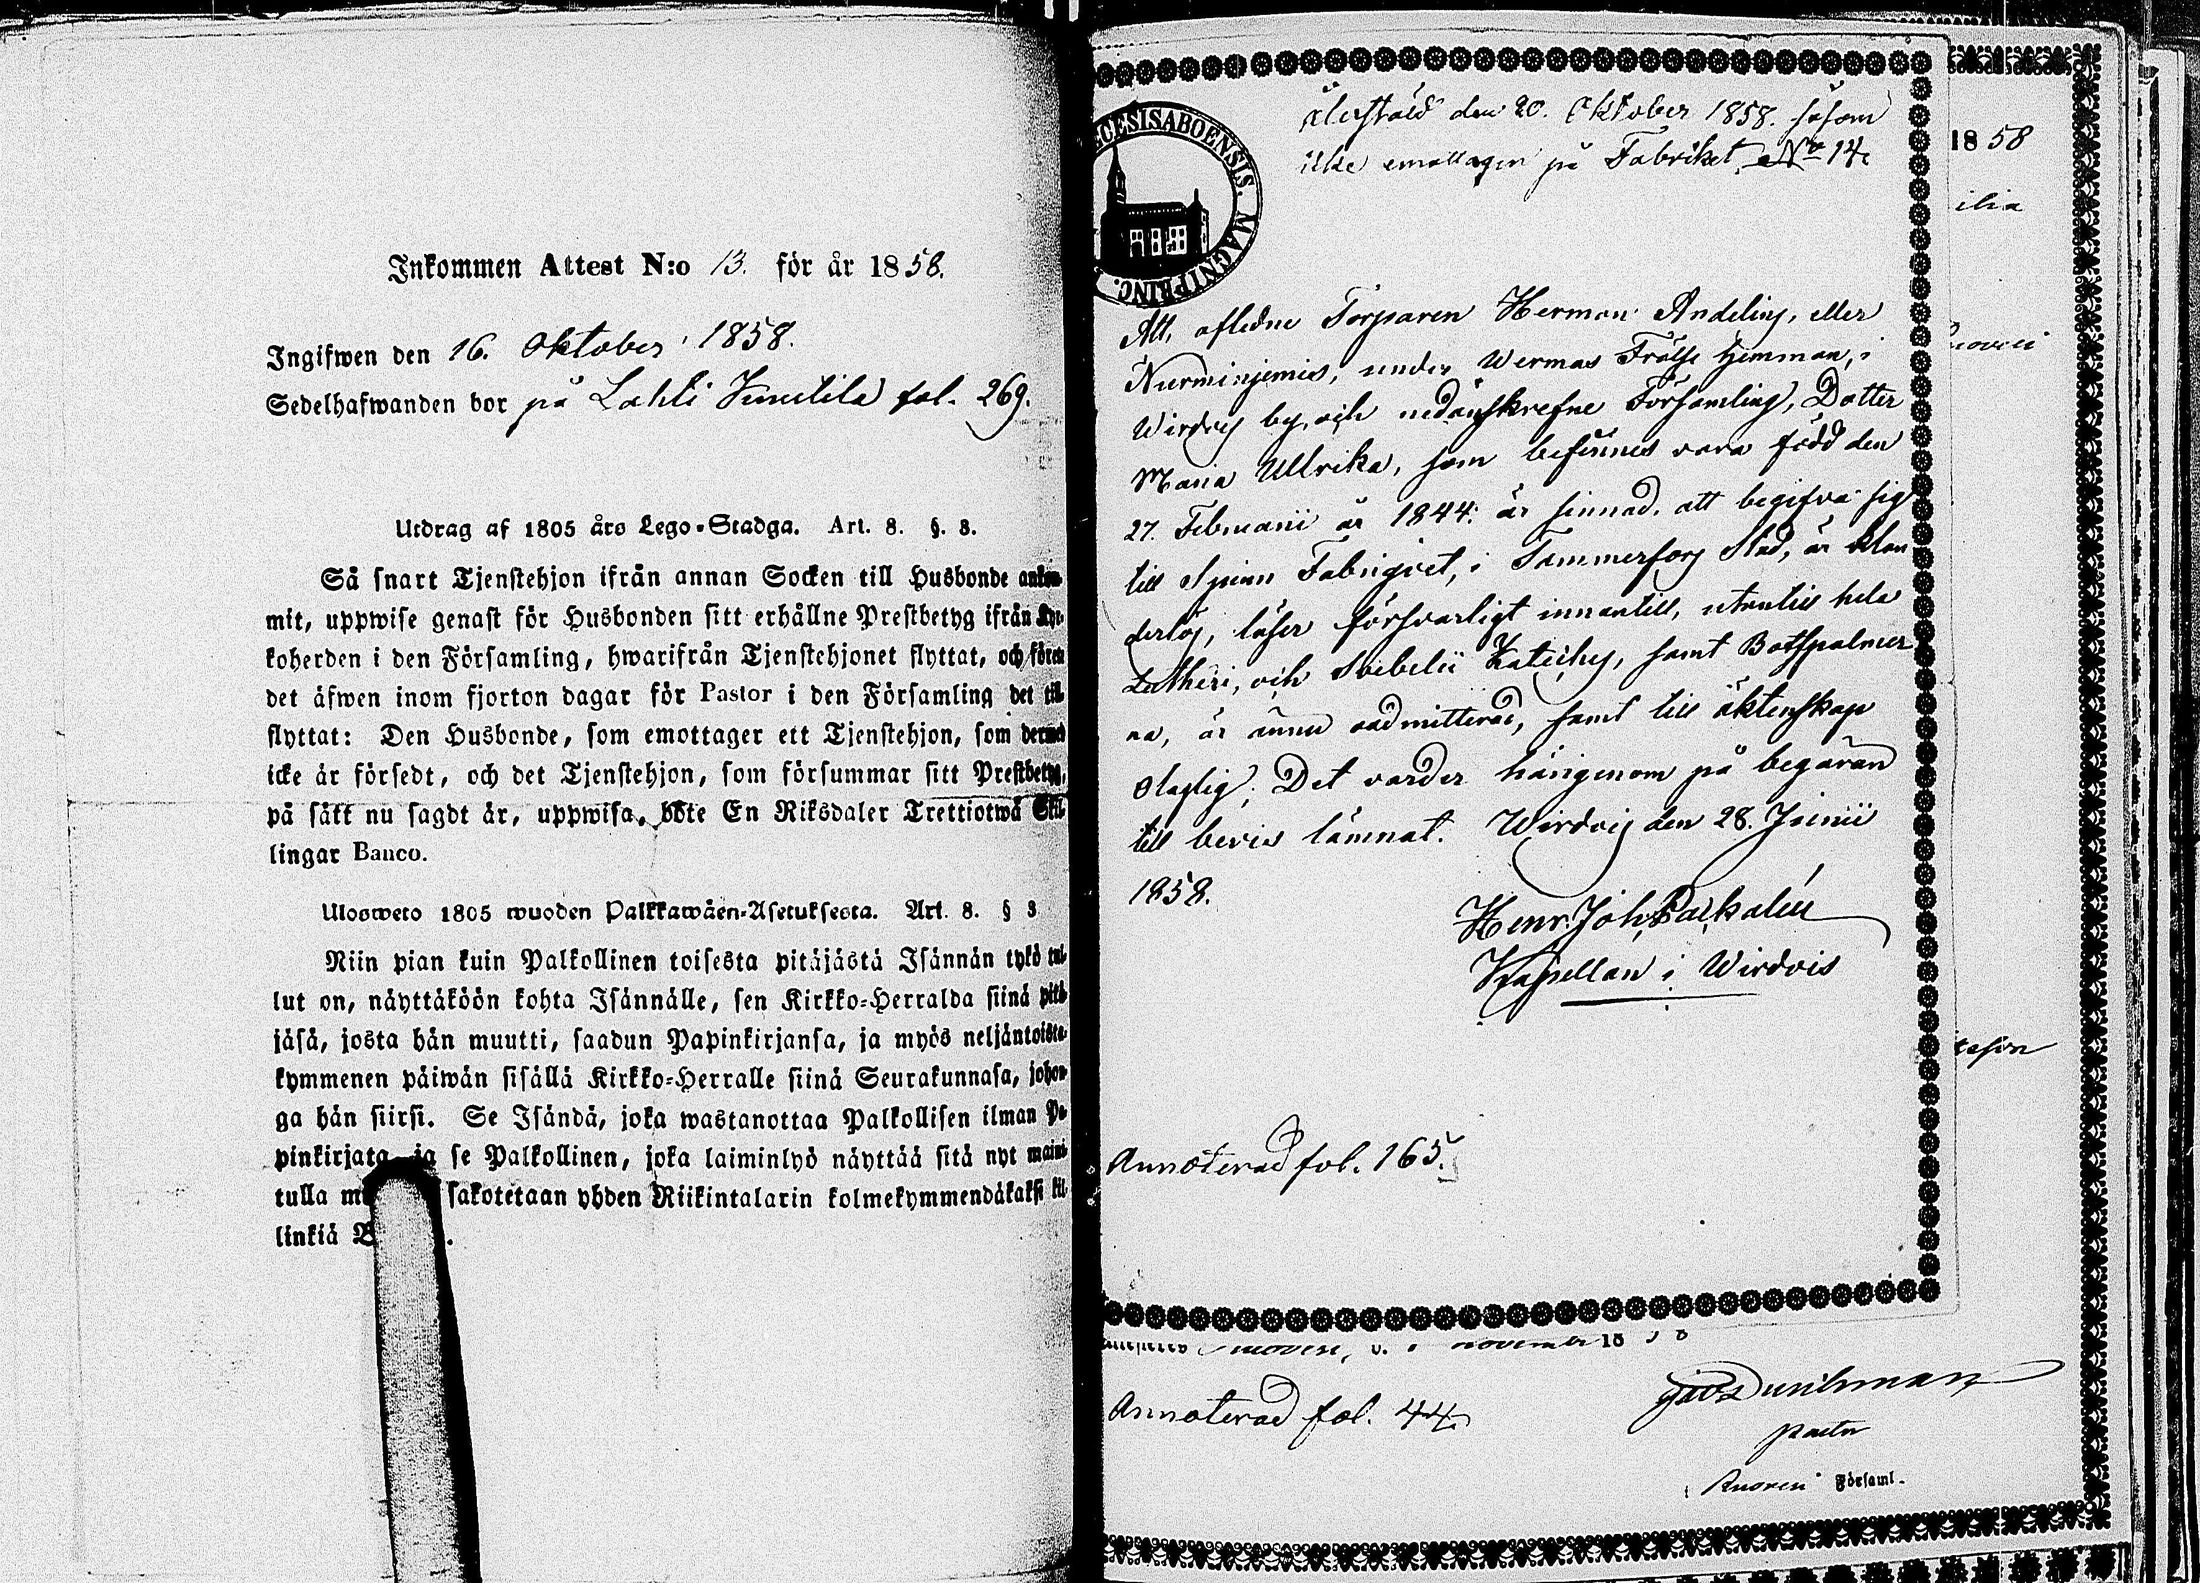 Inkommen Attest N:o 13. för år 1858.
Ingifwen den 16. Oktober 1858.
Sedelhafwanden bor på Lahti fol. 269.
Utdrag af 1805 års Lego-Stadga. Art. 8. §. 3.
Så snart Tjenstehjon ifrån annan Socken till Husbonde ankom-
mit, uppwise genast för Husbonden sitt erhållne Prestbetyg ifrån Kyr-
koherden i den Församling, hwarifrån Tjenstehjonet flyttat, och förete
det äfwen inom fjorton dagar för Pastor i den Församling det till-
flyttat: Den Husbonde, som emottager ett Tjenstehjon, som dermed
icke är försedt, och det Tjenstehjon, som försummar sitt Prestbetyg,
på sätt nu sagdt är, uppwisa, böte En Riksdaler Trettiotwå Skil-
lingar Banco.
Ulosweto 1805 wuoden Palkkawäen-Asetuksesta. Art. 8. § 3
Niin pian kuin Palkollinen toisesta pitäjästä Isännän tykö tul-
lut on, näyttäköön kohta Isännälle, sen Kirkko-Herralda siinä pitä-
jäsä, josta hän muutti, saadun Papinkirjansa, ja myös neljäntoista-
kymmenen päiwän sisällä Kirkko-Herralle siinä Seurakunnasa, johon-
ga hän siirsi. Se Isändä, joka wastanottaa Palkollisen ilman Pa-
pinkirjata, ja se Palkollinen, joka laiminlyö näyttää sitä nyt maini-
tulla sakotetaan yhden Riikintalarin kolmekymmendäkaksi kil-
linkiä
ECESIS ABOENSIS. MAGNI PRINC.
Återstäld den 20. Oktober 1858. såsom
icke emottagen på Fabriket. No 14.
Att, afledne Torparen Herman Andelin, eller
Nurminiemis, under Wermas Frälse hemman, i
Wirdois by, och nedanskrefne Församling, Dotter
Maria Ullrika, som befinnes vara född den
27. Februarii år 1844: är sinnad att begifva sig
till Spinn Fabriqvet, i Tammerfors Stad, är klan-
derlös, läser försvarligt innantill, utantill hela
Lutheri, och Svebelii Kateches, samt Botpsalmer
na, är ännu oadmitterad, samt till äktenskap
olaglig; Det varder härigenom på begäran
till bevis lämnat. Wirdois den 28. Junii
1858.
Henr: Joh,
Kapellan i Wirdois
Annoterad fol. 165.
Ruovesi, d. november 1858
Annoterad fol. 44
Pastor
Ruovesi Församl.
1858
ilia